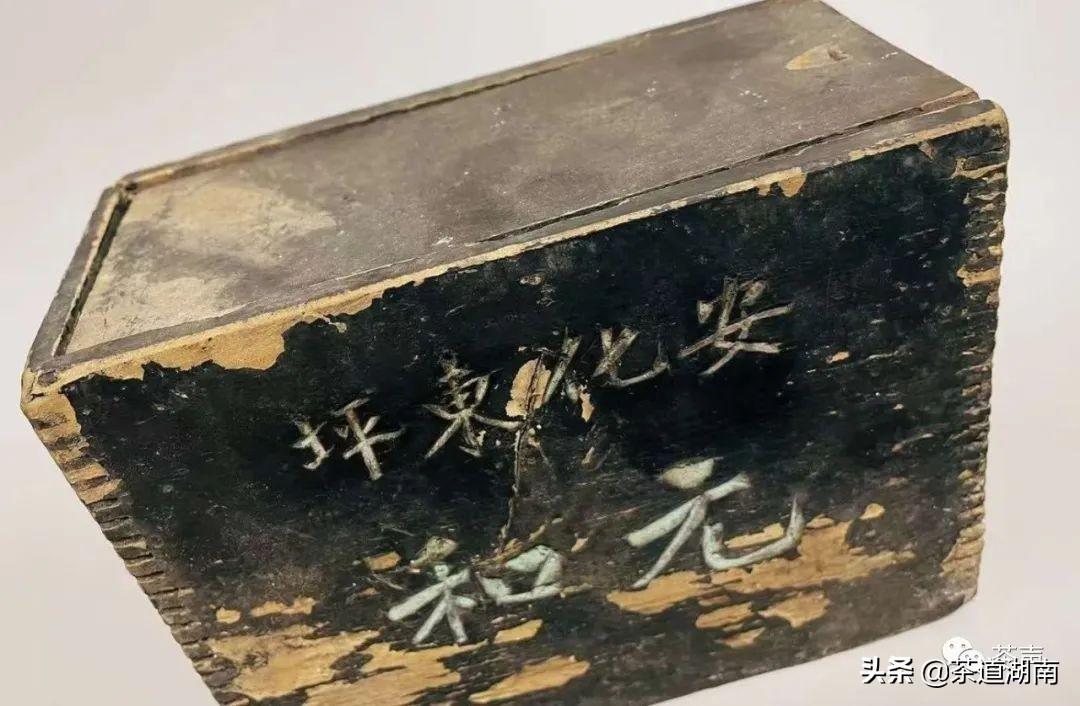 安化東坪
元和
茶声
头条 @茶道湖南